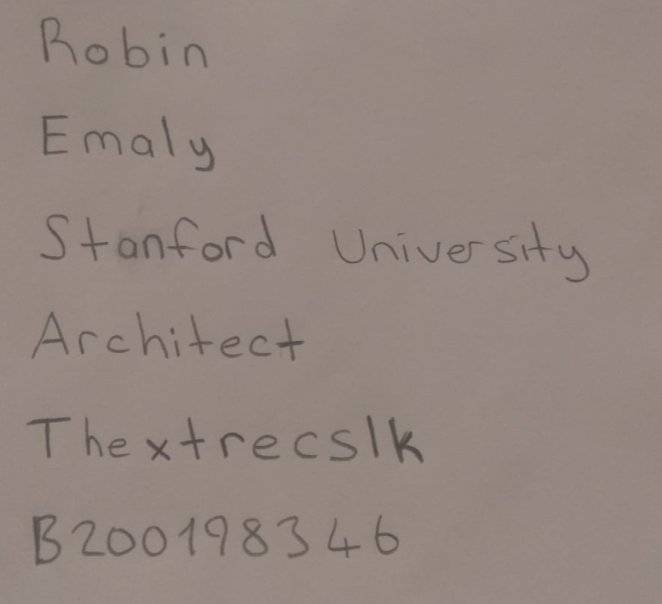 Robin
Emaly
Stanford University
Architect
Thextrecslk
B200198346